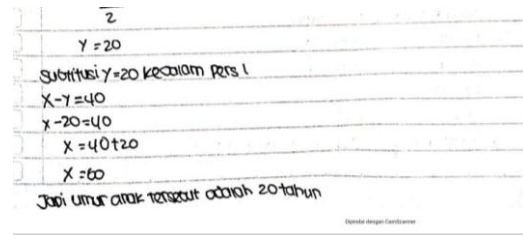 2
Y = 20
Subtitusi Y=20 kedalam pers 1
X-Y=40
X-20=40
X = 40+20
X = 60
Jadi umur anak tersebut adalah 20 tahun
Dipindai dengan CamScanner